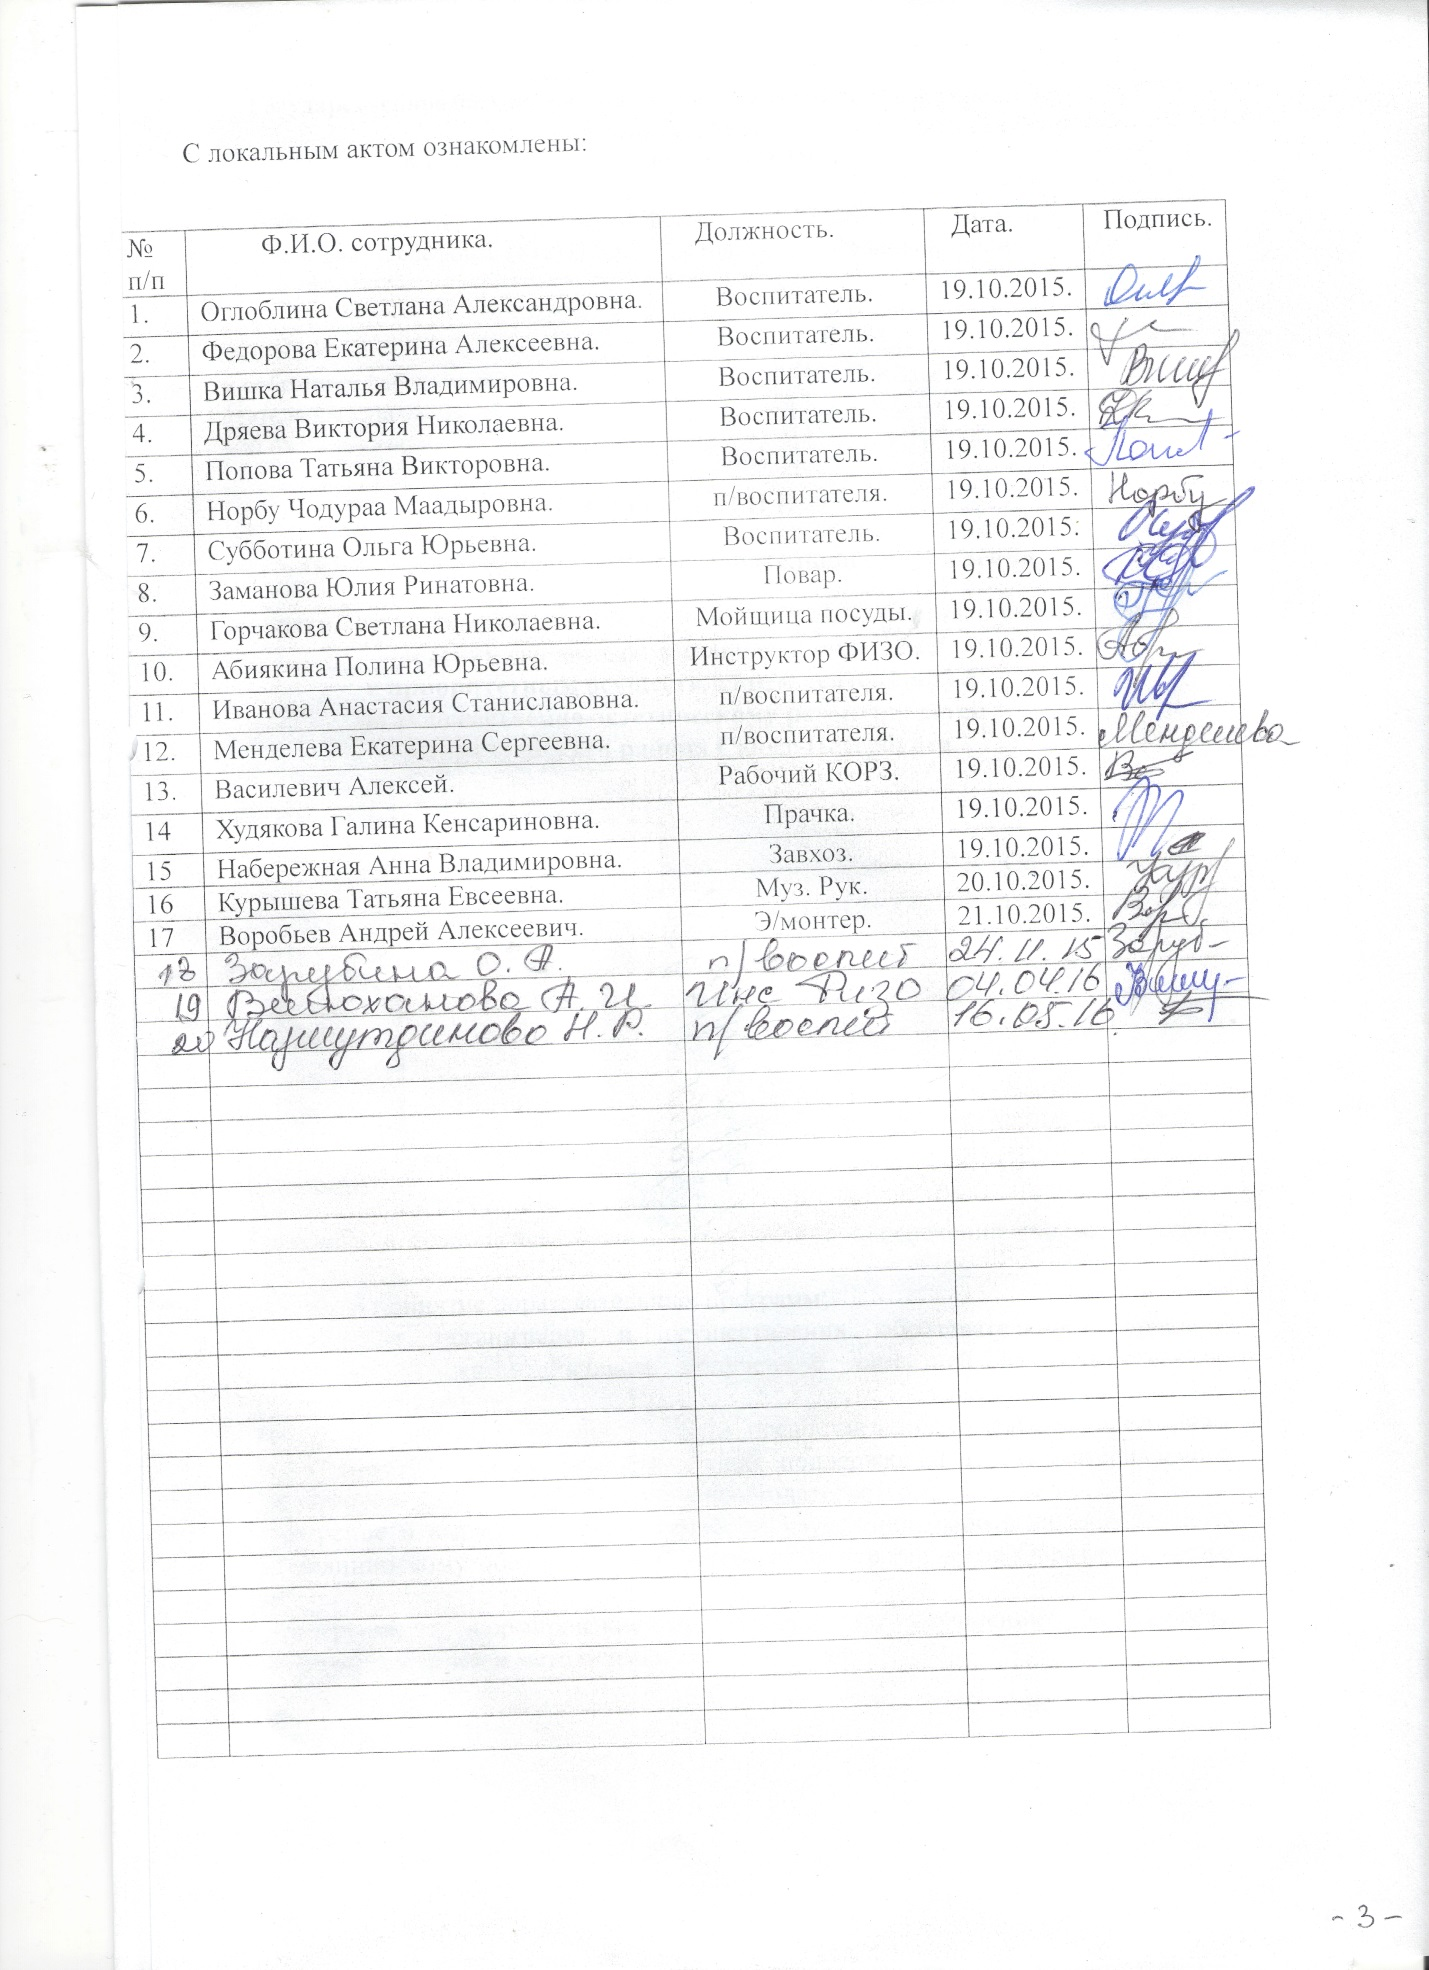 С локальным актом ознакомлены:
№ п/п Ф.И.О. сотрудника. Должность. Дата. Подпись.
1. Оглоблина Светлана Александровна. Воспитатель. 19.10.2015.
2. Федорова Екатерина Алексеевна. Воспитатель. 19.10.2015.
3. Вишка Наталья Владимировна. Воспитатель. 19.10.2015.
4. Дряева Виктория Николаевна. Воспитатель. 19.10.2015.
5. Попова Татьяна Викторовна. Воспитатель. 19.10.2015.
6. Норбу Чодураа Маадыровна. п/воспитателя. 19.10.2015. Норбу
7. Субботина Ольга Юрьевна. Воспитатель. 19.10.2015.
8. Заманова Юлия Ринатовна. Повар. 19.10.2015.
9. Горчакова Светлана Николаевна. Мойщица посуды. 19.10.2015.
10. Абиякина Полина Юрьевна. Инструктор ФИЗО. 19.10.2015.
11. Иванова Анастасия Станиславовна. п/воспитателя. 19.10.2015.
12. Менделева Екатерина Сергеевна. п/воспитателя. 19.10.2015. Менделева
13. Василевич Алексей. Рабочий КОРЗ. 19.10.2015.
14 Худякова Галина Кенсариновна. Прачка. 19.10.2015.
15 Набережная Анна Владимировна. Завхоз. 19.10.2015.
16 Курышева Татьяна Евсеевна. Муз. Рук. 20.10.2015.
17 Воробьев Андрей Алексеевич. Э/монтер. 21.10.2015.
18 Зарубина О. А. п/воспит 24.11.15 Заруб-
19 А. И Инс Физо 04.04.16
20 Н. Р. п/воспит 16.05.16.
- 3 -